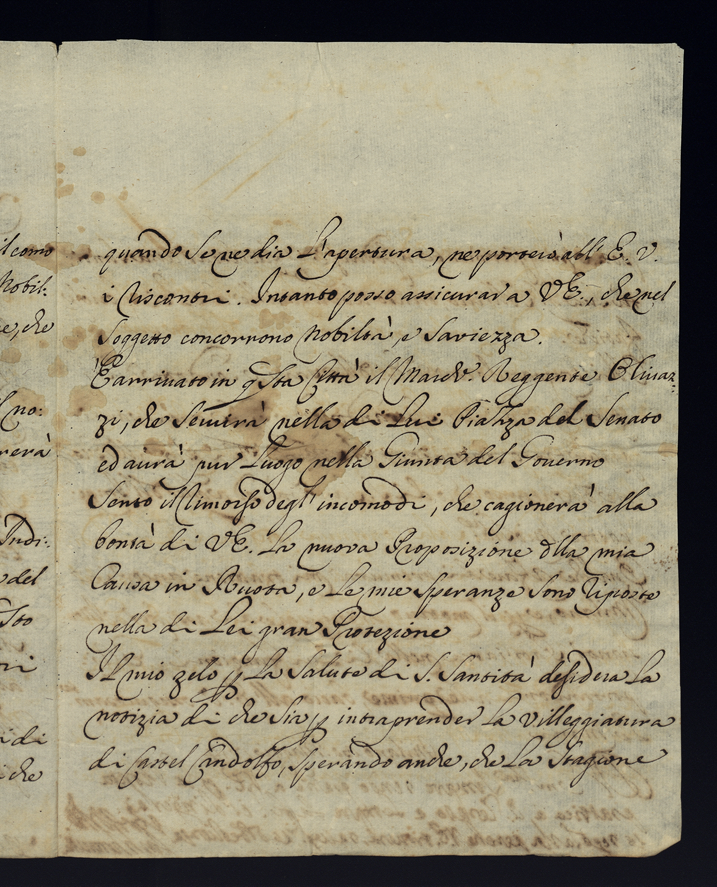 il como
Nobil:
e, che
l no:
rerà
Indi:
del
sto
ri
i di
i che
quando se ne dia l'apertura, ne porterò all' E. V.
i riscontri. Intanto posso assicurar a VE., che nel
soggetto concorrono nobiltà e saviezza.
È arrivato in qsta Città il March. Reggente Olivaz:
zi, che servirà nella di Lui Piazza del Senato
ed avrà pur luogo nella Giunta del Governo
Sento il rimorso degl' incomodi, che cagionerà alla
bontà di VE. la nuova Proposizione dlla mia
Causa in Ruota, e le mie speranze sono riposte
nella di Lei gran Protezione
Il mio zelo p la salute di S. Santità desidera la
notizia di che sia p intraprender la villeggiatura
di Castel Gandolfo, sperando anche, che la Stagione